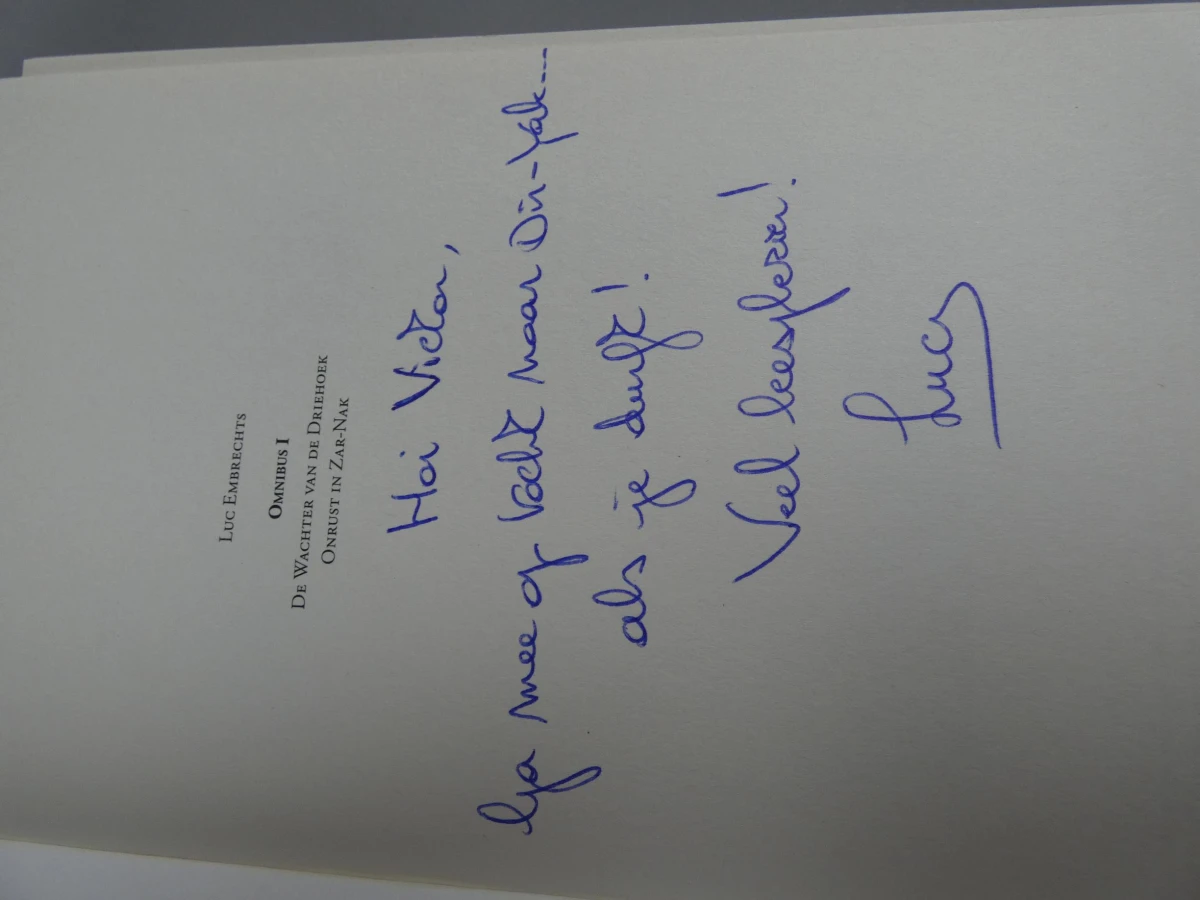 LUC EMBRECHTS
OMNIBUS I
DE WACHTER VAN DE DRIEHOEK
ONRUST IN ZAR-NAK
Hoi Victor,
Ga mee op tocht naar Dir-Yak...
als je durft!
Veel leesplezier!
Luc